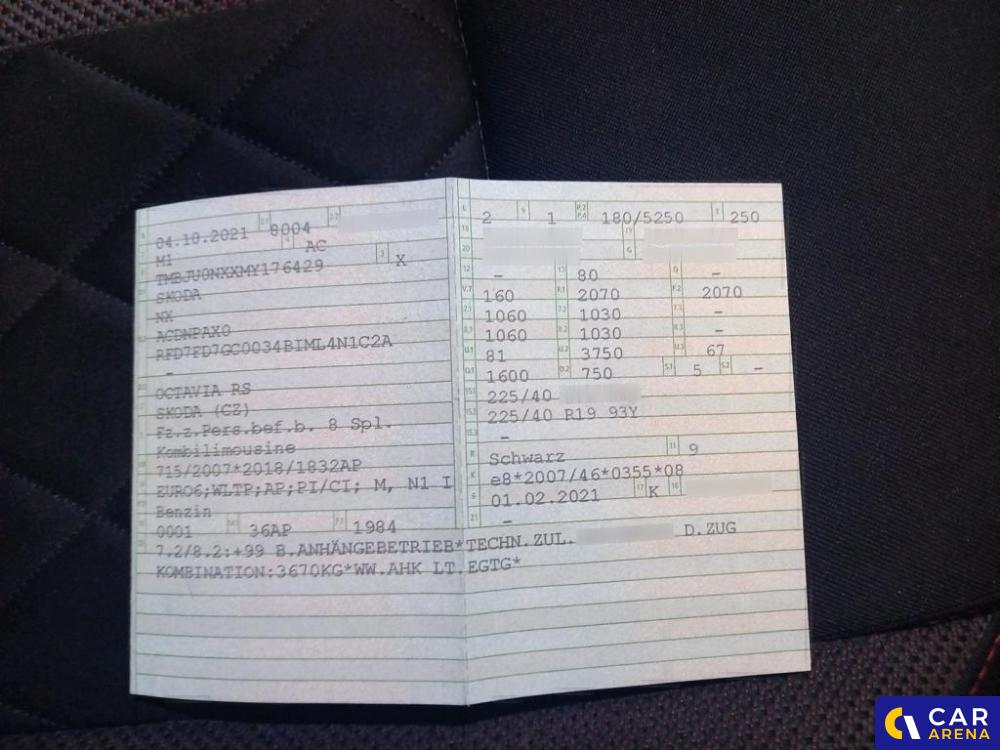 B 04.10.2021 2.1 8004 2.2
M1 4 AC
TMBJU0NXXMY176429 3 X
SKODA
NX
ACDNPAX0
RFD7FD7GC0034BIML4N1C2A
–
OCTAVIA RS
SKODA (CZ)
Fz.z.Pers.bef.b. 8 Spl.
Kombilimousine
715/2007*2018/1832AP
EURO6;WLTP;AP;PI/CI; M, N1 I
Benzin
0001 36AP P.1 1984
L 2 9 1 P.2 P.4 180/5250 T 250
18 19
20 G
12 – 13 80 Q –
V.7 160 F.1 2070 F.2 2070
7.1 1060 7.2 1030 7.3 –
8.1 1060 8.2 1030 8.3 –
U.1 81 U.2 3750 U.3 67
O.1 1600 O.2 750 S.1 5 S.2 –
15.1 225/40
15.2 225/40 R19 93Y
15.3 –
R Schwarz 11 9
K e8*2007/46*0355*08
6 01.02.2021 17 K 16
21 –
7.2/8.2:+99 B.ANHÄNGEBETRIEB*TECHN.ZUL. D.ZUG
KOMBINATION:3670KG*WW.AHK LT.EGTG*
CAR
ARENA